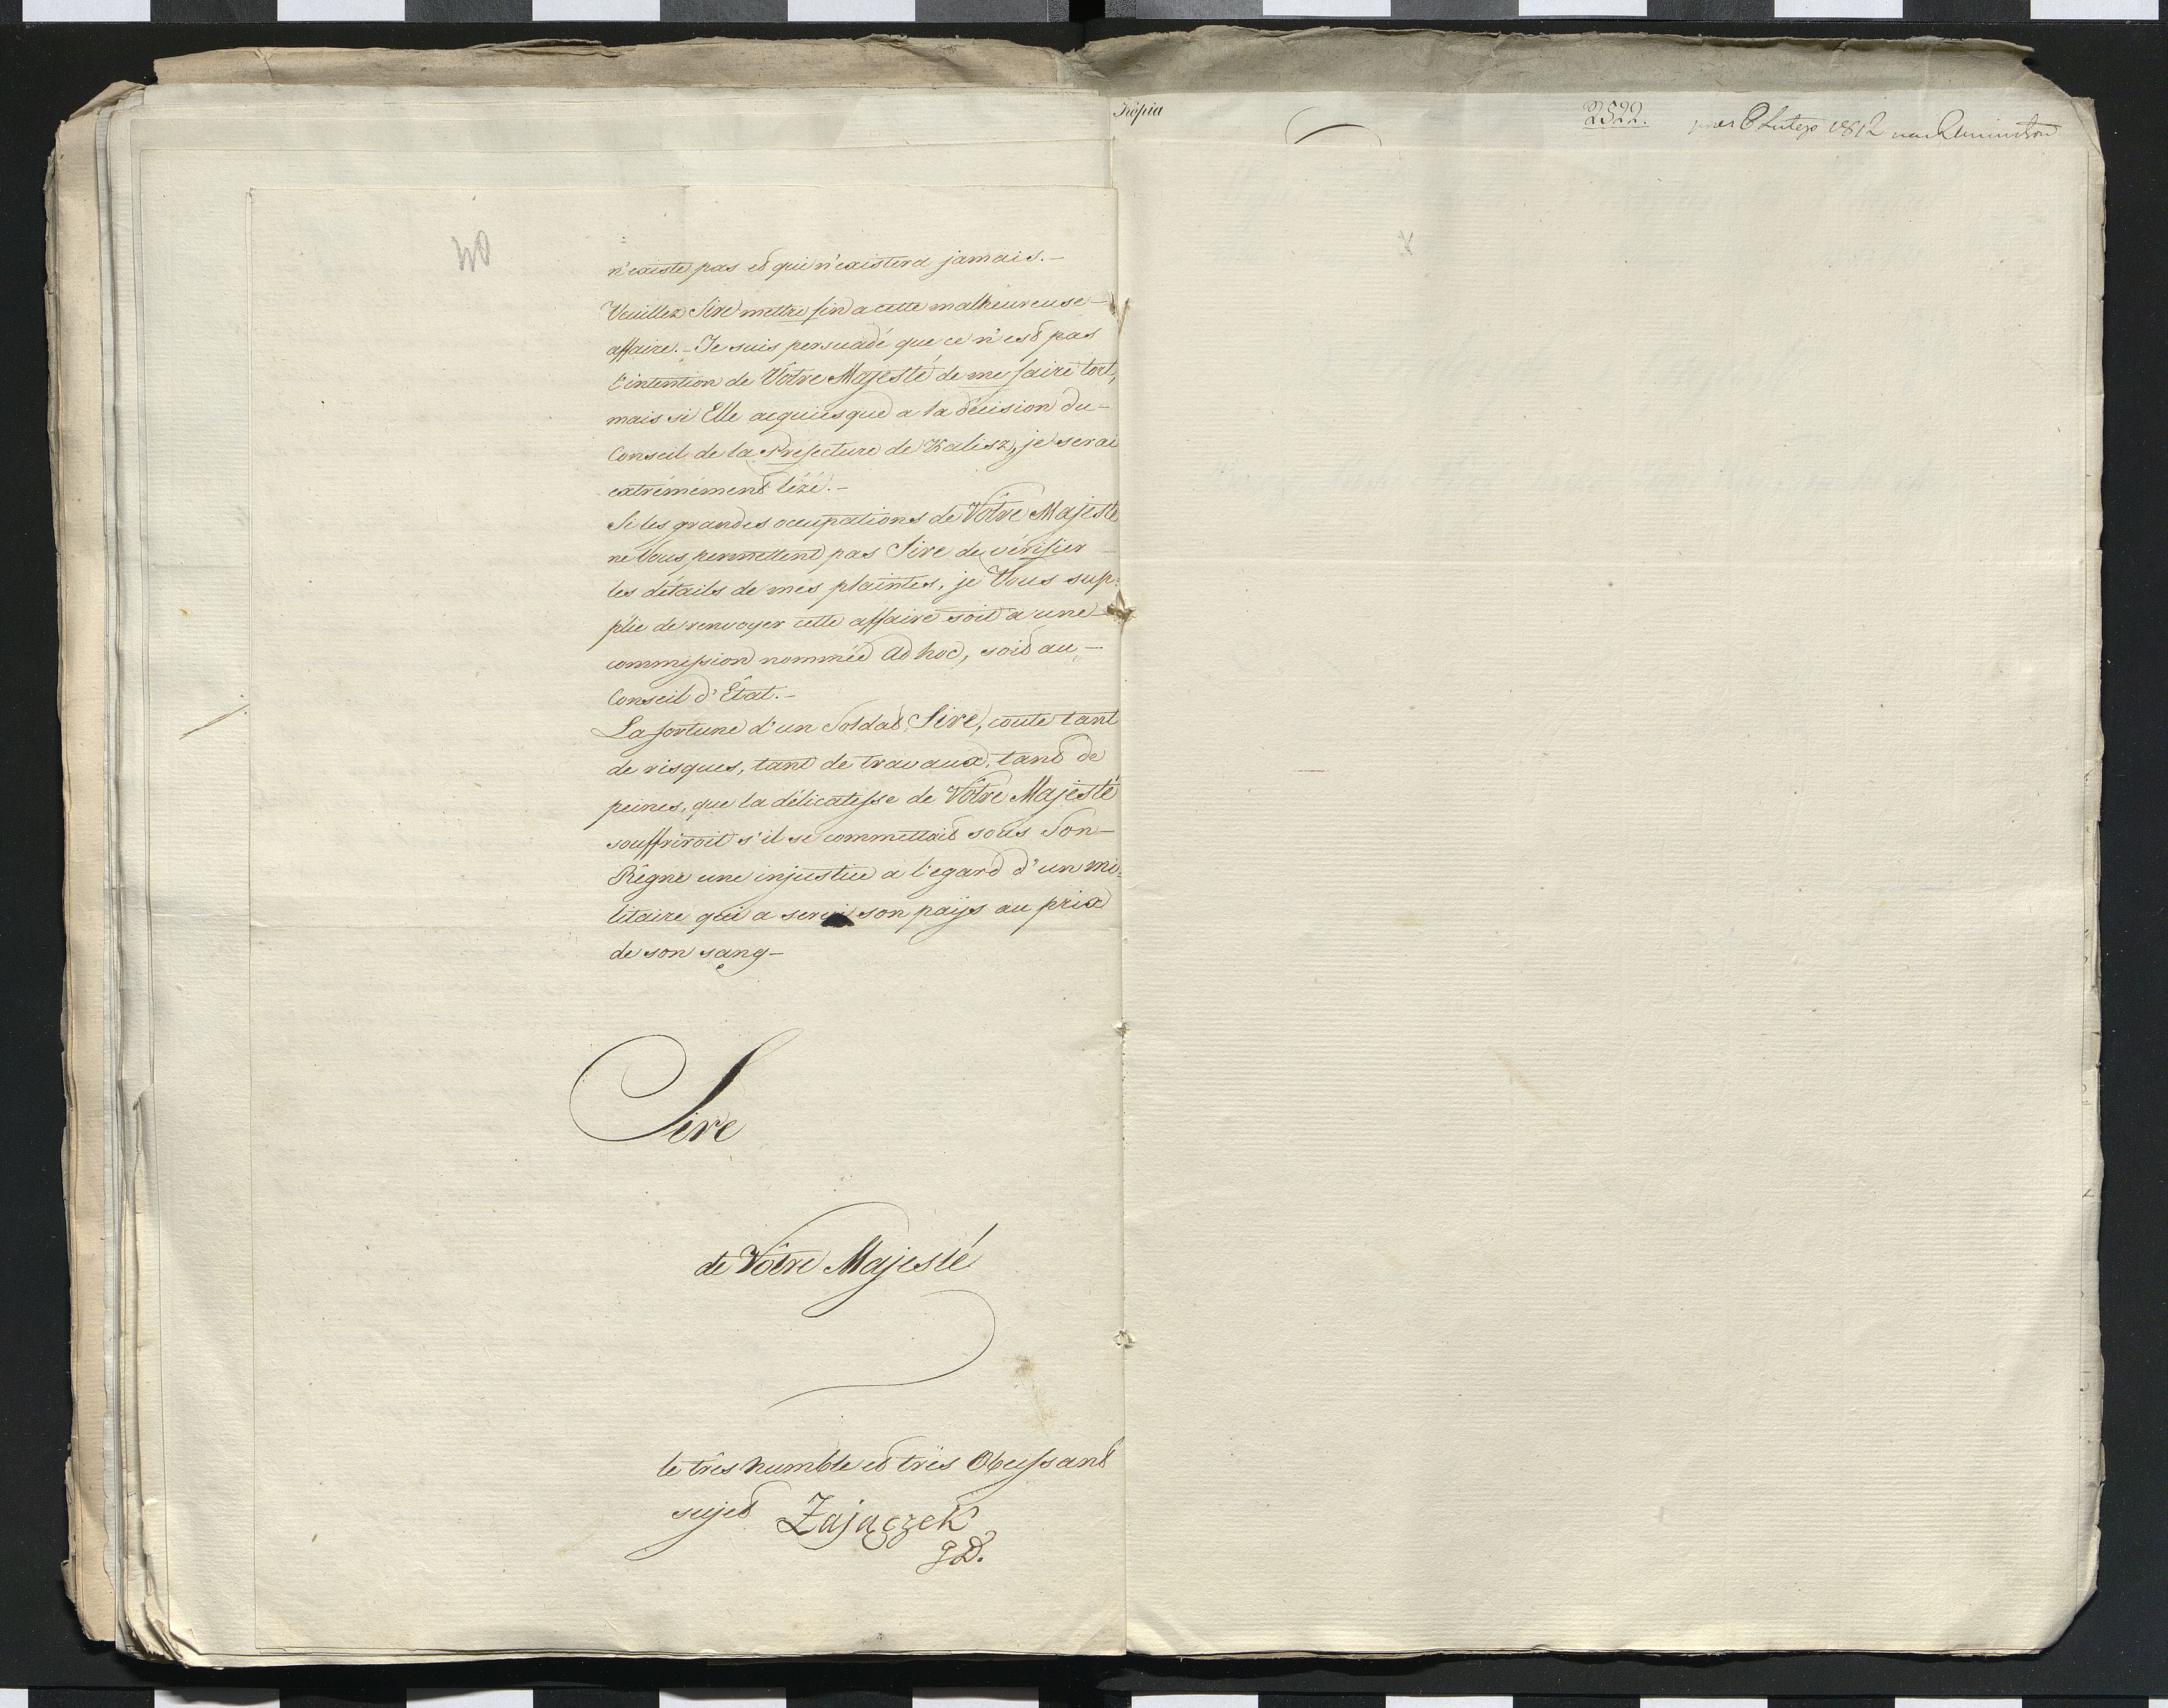 n'existe pas et qui n'existera jamais.—
Veuillez Sire mettre fin a cette malheureuse—
affaire.— Je suis persuadé que ce n'est pas
l'intention de Vôtre Majesté de me faire tort,
mais si Elle acquiesque a la décision du—
Conseil de la Préfecture de Kalisz, je serai
extrémément lézé.—
Si les grandes occupations de Vôtre Majesté
ne Vous permettent pas Sire de vérifier
les détails de mes plaintes, je Vous sup:
plie de renvoyer cette affaire soit a une—
commission nommée ad hoc, soit au—
Conseil d'Êtat.—
La fortune d'un Soldat, Sire, coute tant
de risques, tant de travaux, tant de
peines, que la délicatesse de Vôtre Majesté
souffriroit s'il se commettait sous Son—
Règne une injustice a l'egard d'un mi:
litaire qui a servi son païs au prix
de son sang—
Sire
de Vôtre Majesté
le très humble et très Obeissant
sujet Zajączek
g D.
Kopia
2522.
8 Lutego 1812